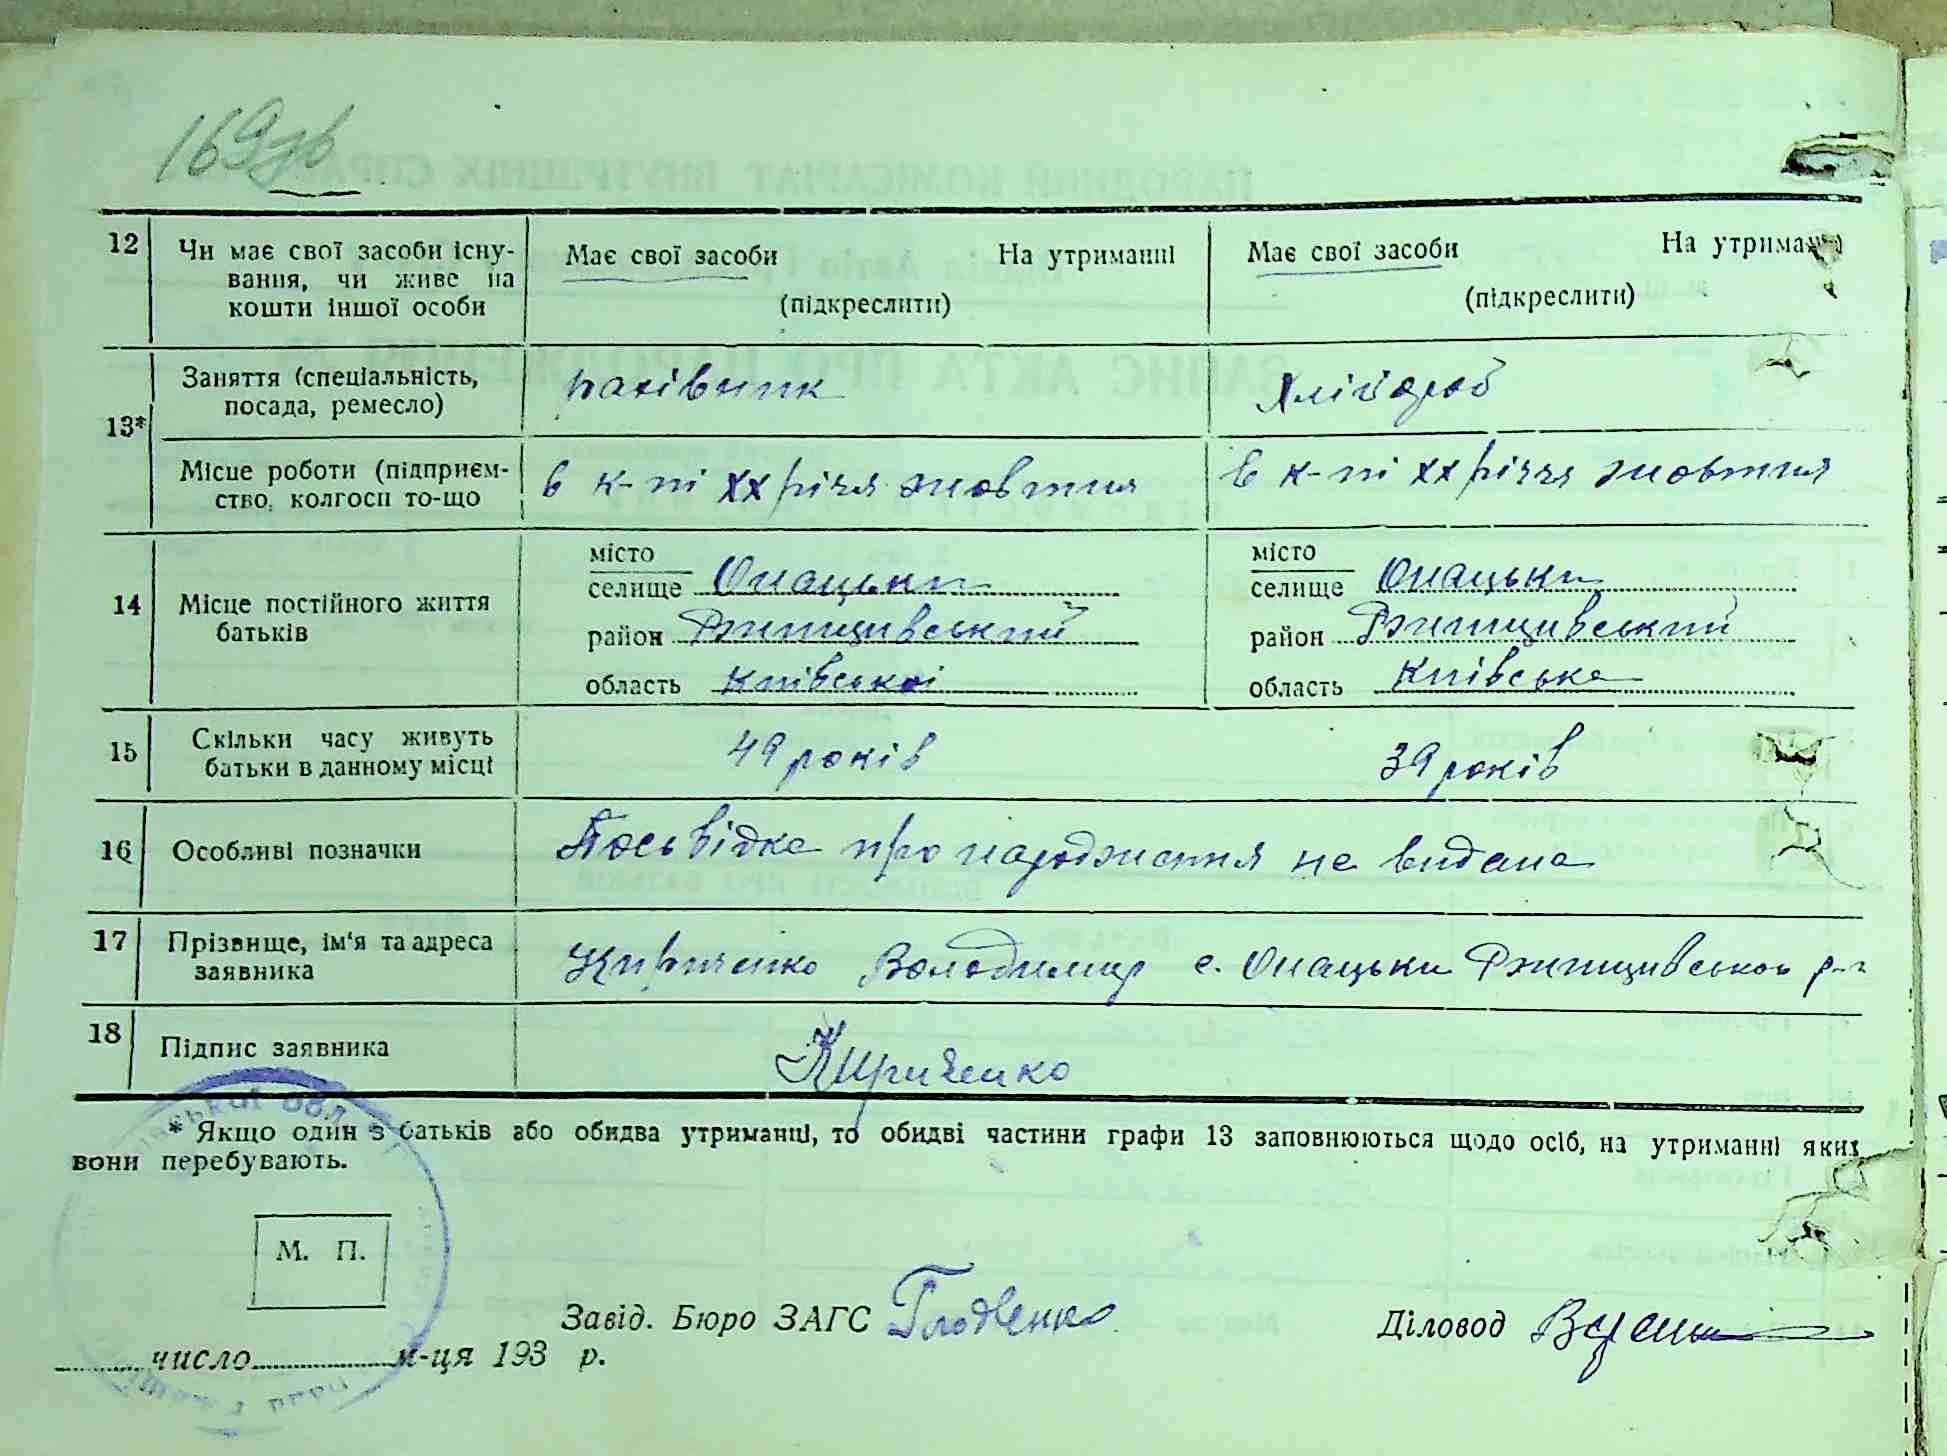 169зв
12 Чи має свої засоби існу- Має свої засоби На утриманні Має свої засоби На утриман
вання, чи живе на
кошти іншої особи (підкреслити) (підкреслити)
13* Заняття (спеціальність, рахівник Хлібороб
посада, ремесло)
Місце роботи (підприєм- в к-пі ХХ річчя жовтня в к-пі ХХ річчя жовтня
ство, колгосп то-що
14 Місце постійного життя батьків
місто місто
селище Онацьки селище Онацьки
район Ржищивський район Ржищивський
область Київської область Київська
15 Скільки часу живуть 49 років 39 років
батьки в данному місці
16 Особливі позначки Посьвідка про народження не видана
17 Прізвище, ім'я та адреса Кириченко Володимир с. Онацьки Ржищивського р-н
заявника
18 Підпис заявника Кириченко
* Якщо один з батьків або обидва утриманці, то обидві частини графи 13 заповнюються щодо осіб, на утриманні яких
вони перебувають.
М. П.
Завід. Бюро ЗАГС Діловод
число м-ця 193 р.